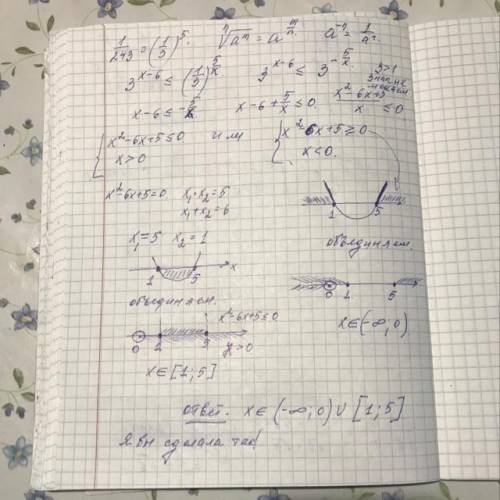 1/243 = (1/3)^5. ⁿ√a^m = a^(m/n). a^(-n) = 1/a^n.
3^(x-6) ≤ (1/3)^(5/x) 3^(x-6) ≤ 3^(-5/x) 3>1
знак не меняем
x-6 ≤ -5/x x-6+5/x ≤ 0 (x²-6x+5)/x ≤ 0
{ x²-6x+5 ≤ 0 или { x²-6x+5 ≥ 0
x > 0 x < 0.
x²-6x+5=0 x₁·x₂=5
x₁+x₂=6
1 5
x₁=5 x₂=1
объединяем.
1 5 x
объединяем.
0 1 5
x²-6x+5≤0
0 x>0
x∈(-∞;0)
x∈[1;5]
Ответ. x∈(-∞;0)∪[1;5]
Я бы сделала так!